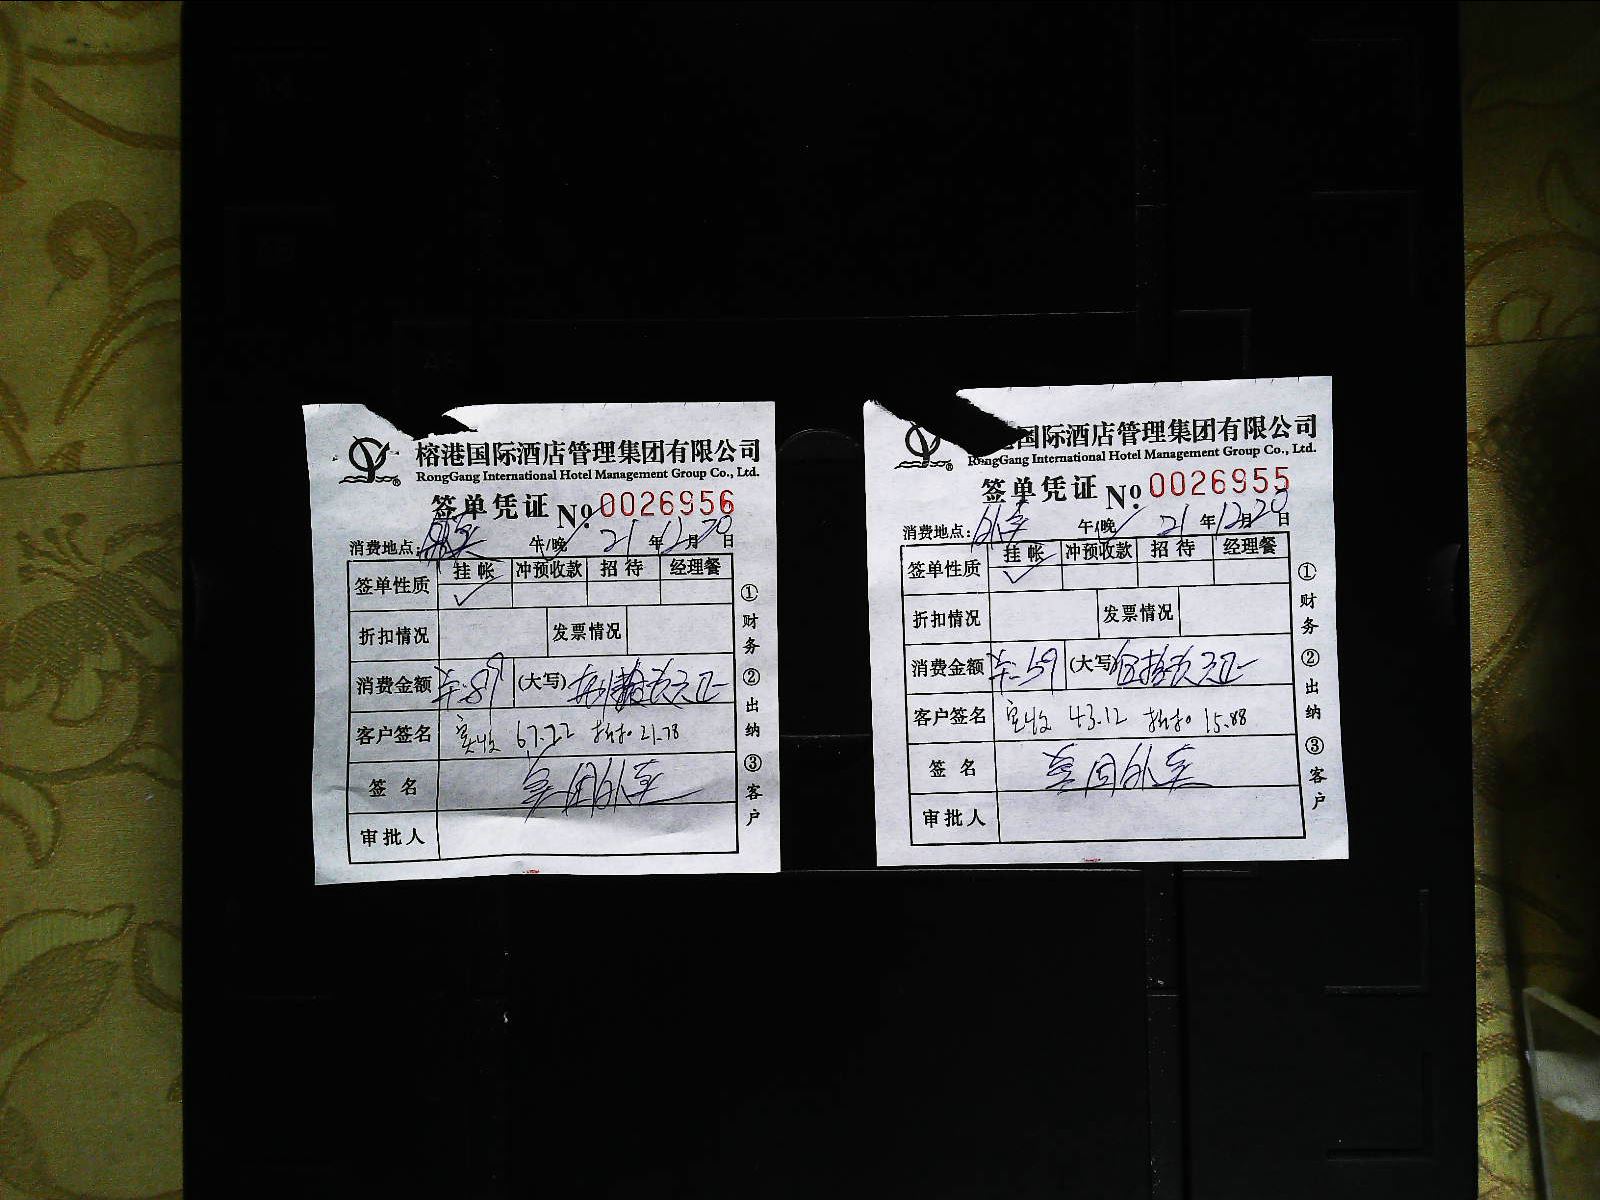 榕港国际酒店管理集团有限公司
RongGang International Hotel Management Group Co., Ltd.
签单凭证 No. 0026956
消费地点: 外卖 午/晚 21年12月20日
签单性质 挂帐 ✓ 冲预收款 招待 经理餐
折扣情况 发票情况
消费金额 羊:89 (大写) 捌拾玖元正
客户签名 实收 67.22 折扣 21.78
签名 美团外卖
审批人
①财务 ②出纳 ③客户
国际酒店管理集团有限公司
RongGang International Hotel Management Group Co., Ltd.
签单凭证 No. 0026955
消费地点: 外卖 午/晚 ✓ 21年12月20日
签单性质 挂帐 ✓ 冲预收款 招待 经理餐
折扣情况 发票情况
消费金额 羊:59 (大写) 伍拾玖元正
客户签名 实收 43.12 折扣 15.88
签名 美团外卖
审批人
①财务 ②出纳 ③客户